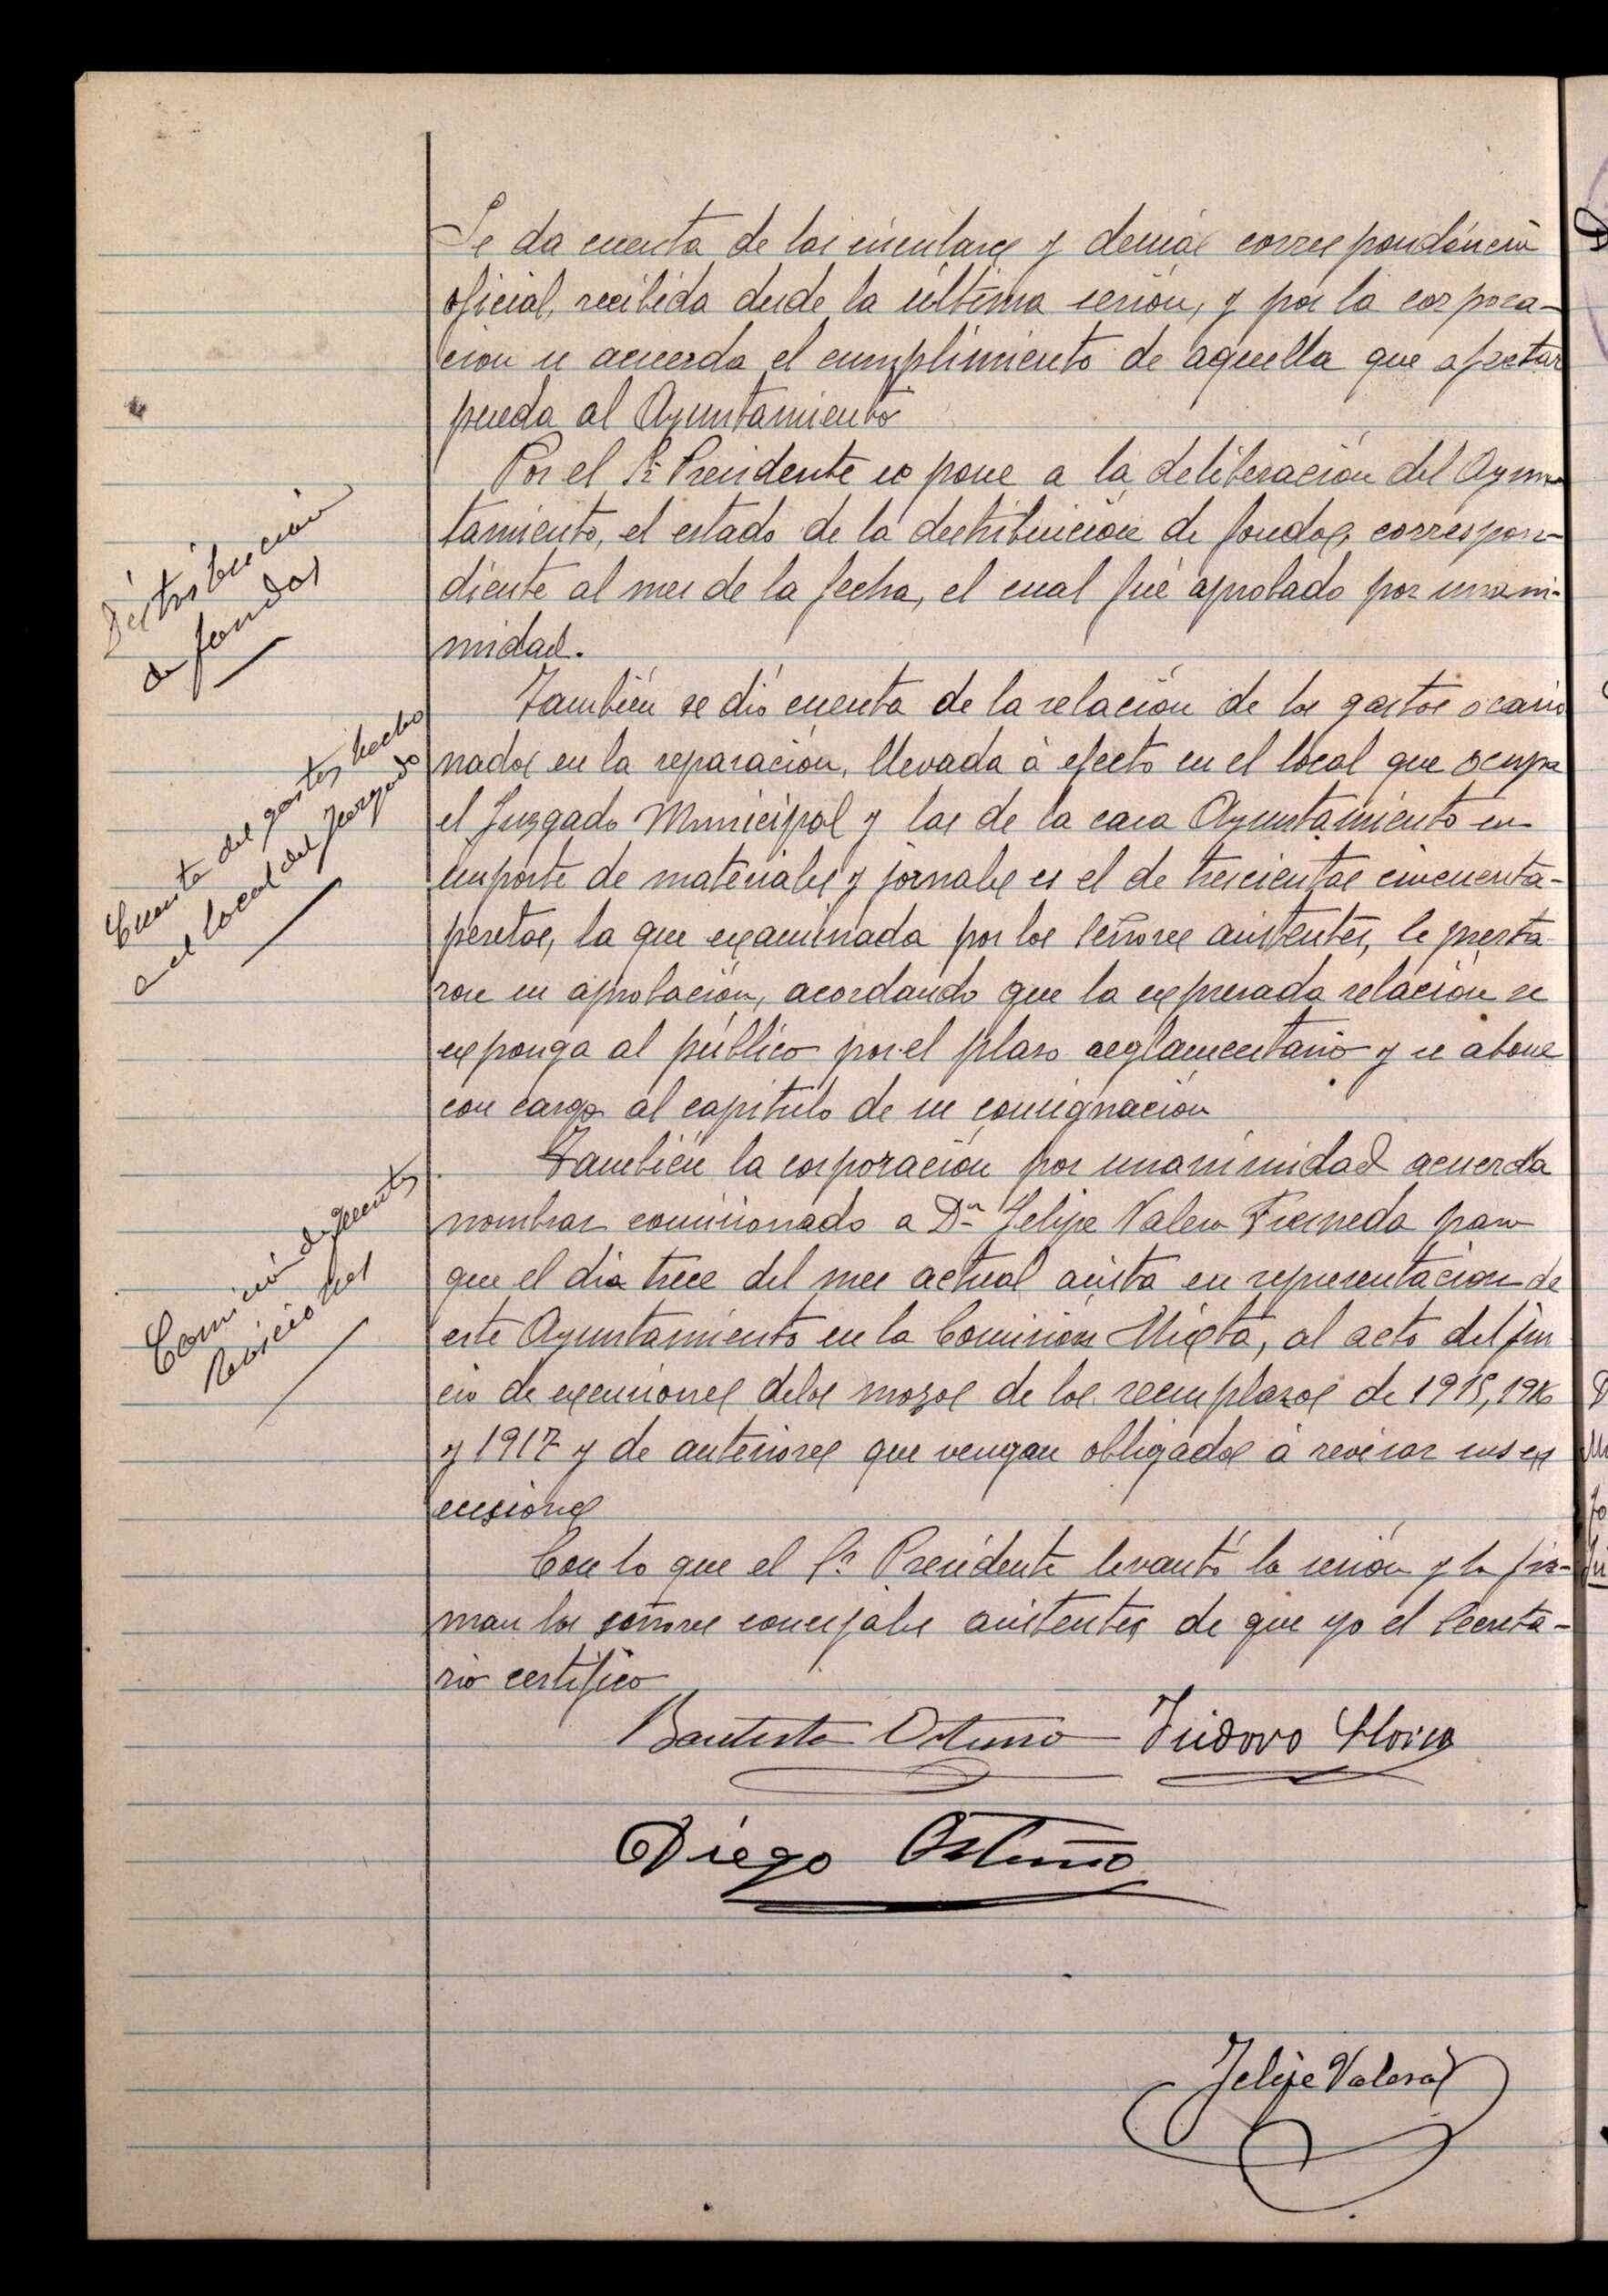 Se da cuenta de las circulares y demás correspondéncia
oficial, recibida desde la última sesión, y por la corpora-
ción se acuerda el cumplimiento de aquella que afectar
pueda al Ayuntamiento
Distribución
de fondos
Por el Sr. Presidente se pone a la deliberación del Ayun-
tamiento, el estado de la distribución de fondos, correspon-
diente al mes de la fecha, el cual fué aprobado por unani-
midad.
Cuenta del gastos hecho
en el local del Juzgado
También se dió cuenta de la relación de los gastos ocasio
nados en la reparación, llevada á efecto en el local que ocupa
el Juzgado Municipal y las de la casa Ayuntamiento su
importe de materiales y jornales es el de trescientas cincuenta-
pesetas, la que examinada por los Señores asistentes, le presta-
ron su aprobación, acordando que la expresada relación se
exponga al público por el plaso reglamentario y se abone
con cargo al capítulo de su consignación
Comisión de Quintas
Revisiones
También la corporación por unanimidad acuerda
nombrar comisionado a Dn Felipe Valero para
que el dia trece del mes actual asista en representación de
este Ayuntamiento en la Comisión Mixta, al acto del jui
cio de exenciones delos mozos de los reemplazos de 1915, 1916
y 1917 y de anteriores que vengan obligados á revisar sus ex
censiones
Con lo que el Sr. Presidente levantó la sesión y la fir-
man los señores concejales asistentes de que yo el Secreta-
rio certifico
Bautista Ortuño Isidoro
Diego Ortuño
Felipe Valero